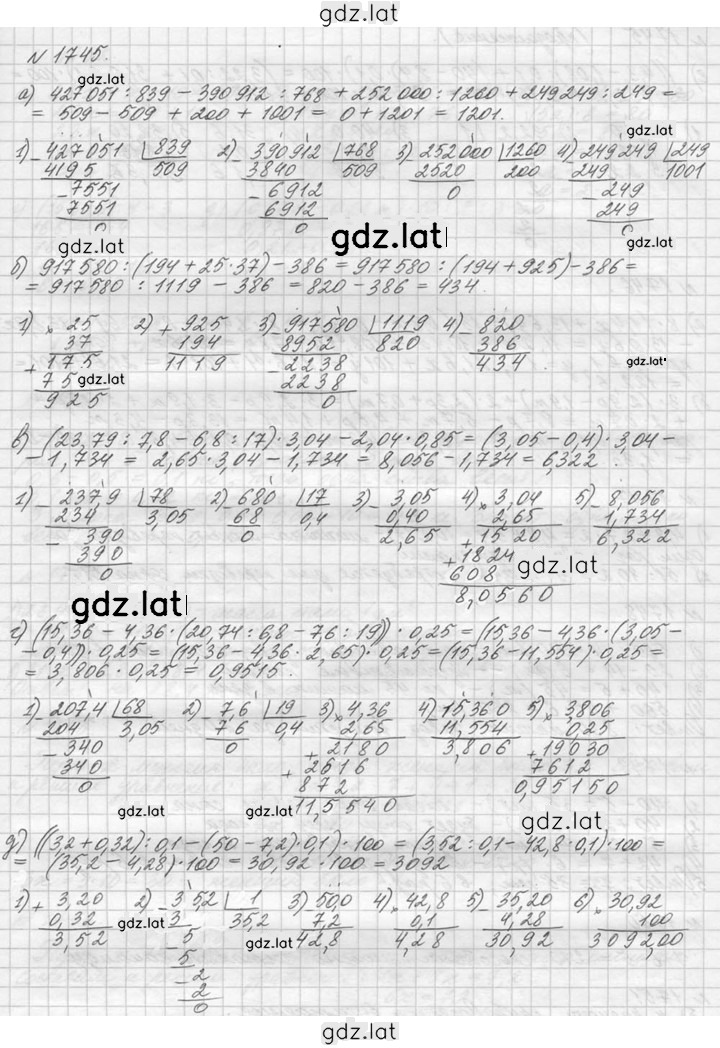 gdz.lat
N 1745.
gdz.lat
а) 427051 : 839 - 390912 : 768 + 252000 : 1260 + 249249 : 249 =
= 509 - 509 + 200 + 1001 = 0 + 1201 = 1201.
gdz.lat
1) 427051 839 2) 390912 768 3) 252000 1260 4) 249249 249
4195 509 3840 509 2520 200 249 1001
- 7551 - 6912 0 - 249
7551 6912 249
0 0 0
gdz.lat gdz.lat gdz.lat
б) 917580 : (194 + 25 · 37) - 386 = 917580 : (194 + 925) - 386 =
= 917580 : 1119 - 386 = 820 - 386 = 434.
1) × 25 2) + 925 3) - 917580 1119 4) - 820
37 194 8952 820 386
+ 175 1119 - 2238 434
gdz.lat
75 gdz.lat 2238
925 0
в) (23,79 : 7,8 - 6,8 : 17) · 3,04 - 2,04 · 0,85 = (3,05 - 0,4) · 3,04 -
- 1,734 = 2,65 · 3,04 - 1,734 = 8,056 - 1,734 = 6,322.
1) - 237,9 78 2) - 680 17 3) - 3,05 4) × 3,04 5) - 8,056
234 3,05 68 0,4 0,40 2,65 1,734
- 390 0 2,65 + 1520 6,322
390 + 1824
0 608 gdz.lat
8,0560
gdz.lat
г) (15,36 - 4,36 · (20,74 : 6,8 - 7,6 : 19)) · 0,25 = (15,36 - 4,36 · (3,05 -
- 0,4)) · 0,25 = (15,36 - 4,36 · 2,65) · 0,25 = (15,36 - 11,554) · 0,25 =
= 3,806 · 0,25 = 0,9515.
1) - 207,4 68 2) - 7,6 19 3) × 4,36 4) - 15,360 5) × 3,806
204 3,05 76 0,4 2,65 11,554 0,25
- 340 0 + 2180 3,806 + 19030
340 + 2616 7612
0 872 0,95150
11,5540
gdz.lat gdz.lat gdz.lat
д) ((3,2 + 0,32) : 0,1 - (50 - 7,2) · 0,1) · 100 = (3,52 : 0,1 - 42,8 · 0,1) · 100 =
= (35,2 - 4,28) · 100 = 30,92 · 100 = 3092
1) + 3,20 2) - 3,52 1 3) 50,0 4) × 42,8 5) - 35,20 6) × 30,92
0,32 gdz.lat 3 35,2 7,2 0,1 4,28 100
3,52 - 5 gdz.lat 42,8 4,28 30,92 3092,00
5
- 2
2
0
gdz.lat